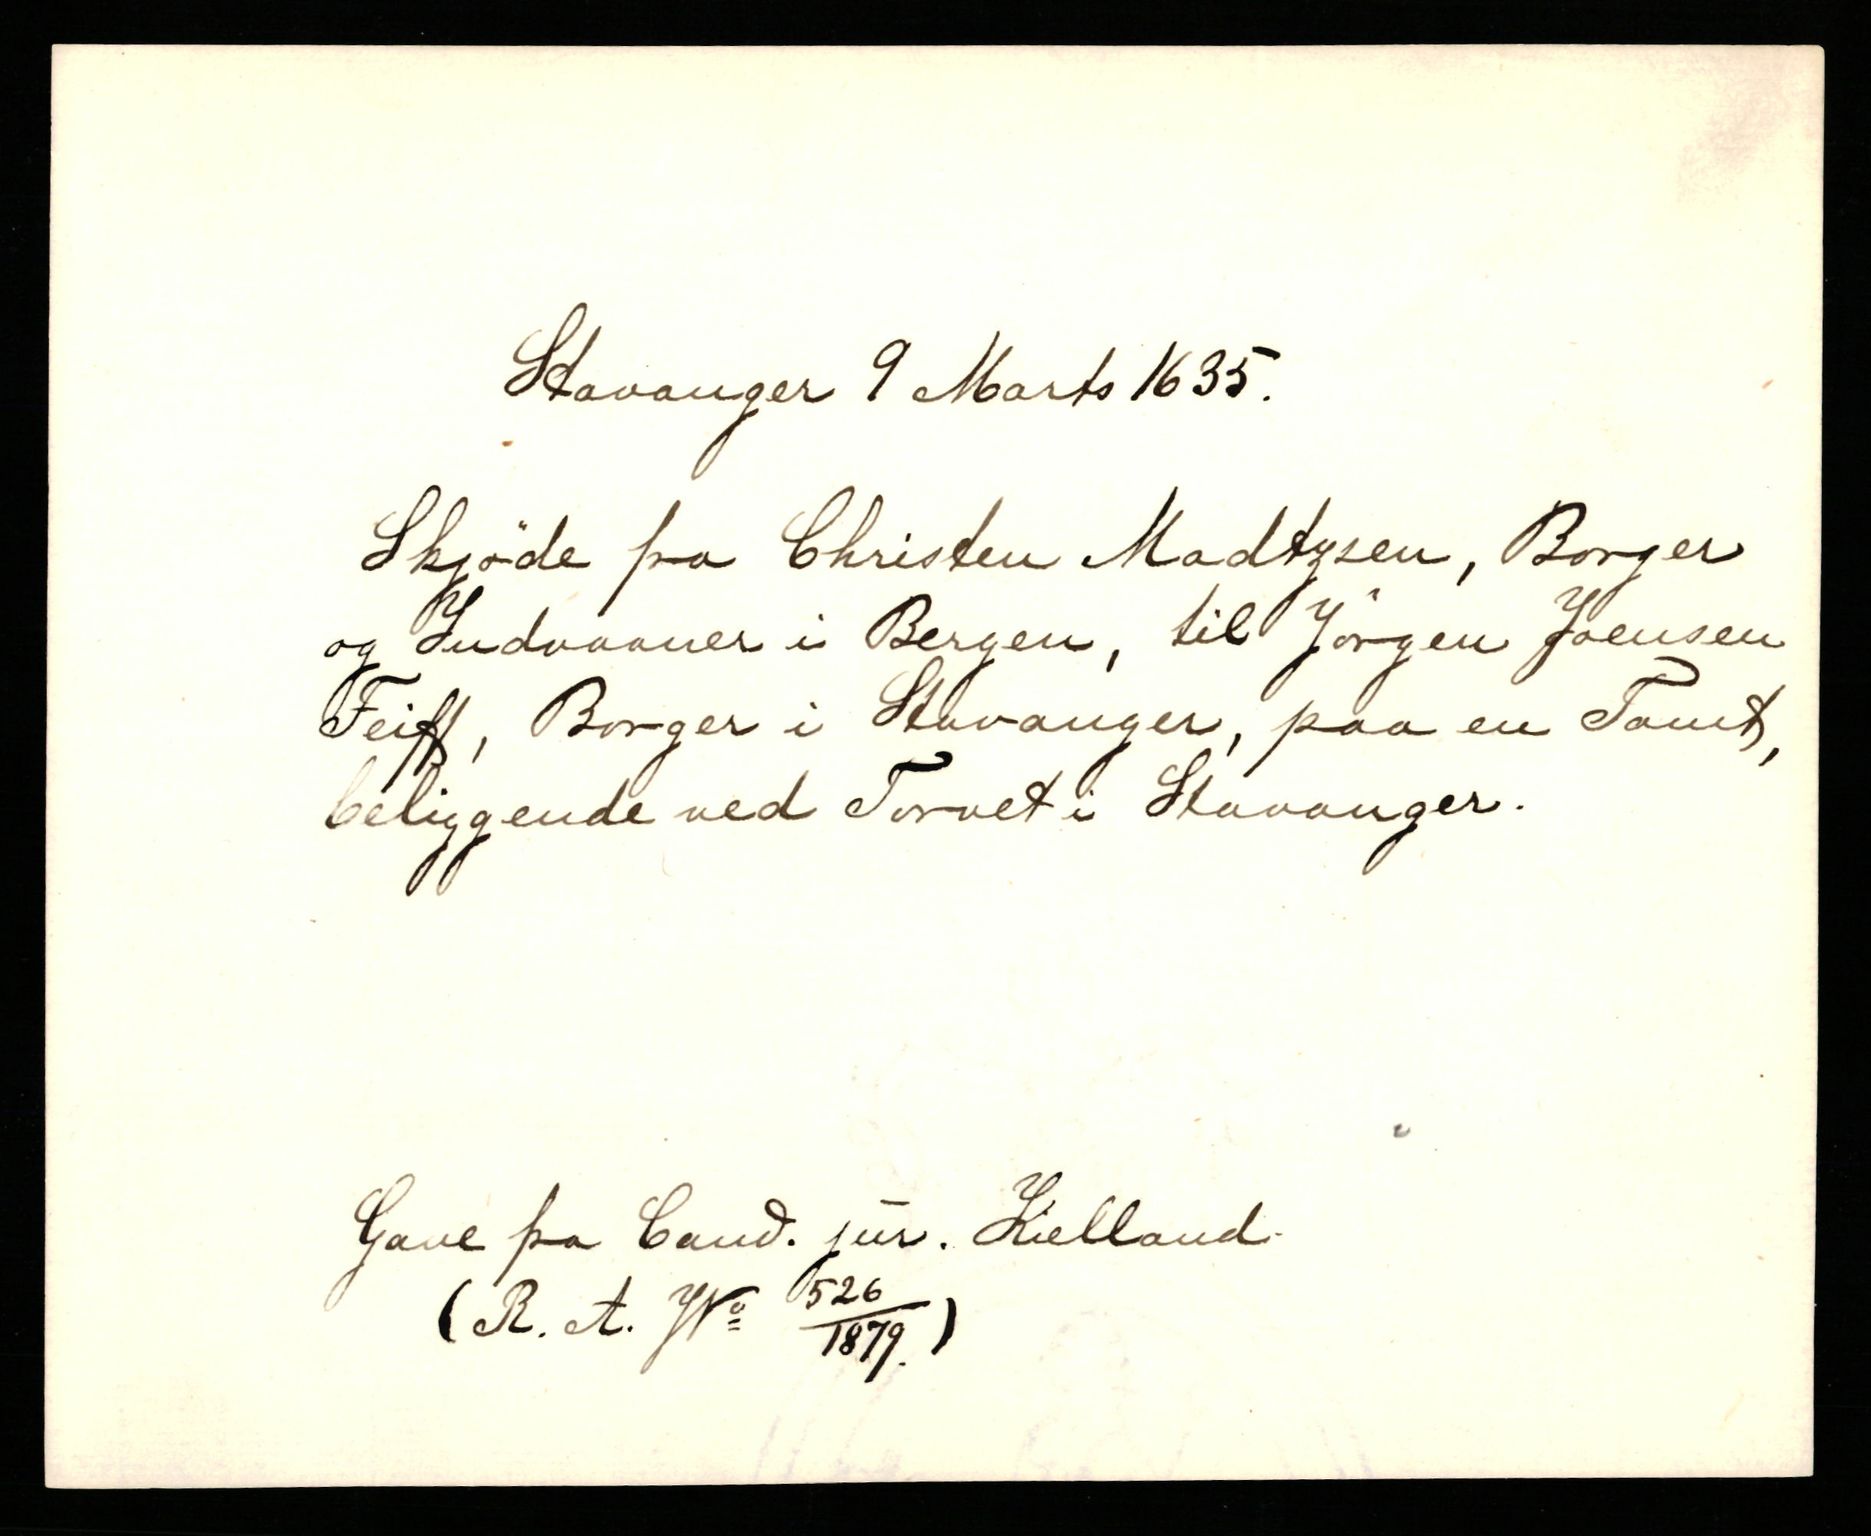 Stavanger 9 Marts 1635.
Skjöde fra Christen Madtzsen, Borger
og Indvaaner i Bergen, til Jörgen Joensen
Feiff, Borger i Stavanger, paa en Tomt,
beliggende ved Torvet i Stavanger.
Gave fra Cand. jur. Kielland.
(R. A. No 526/1879.)